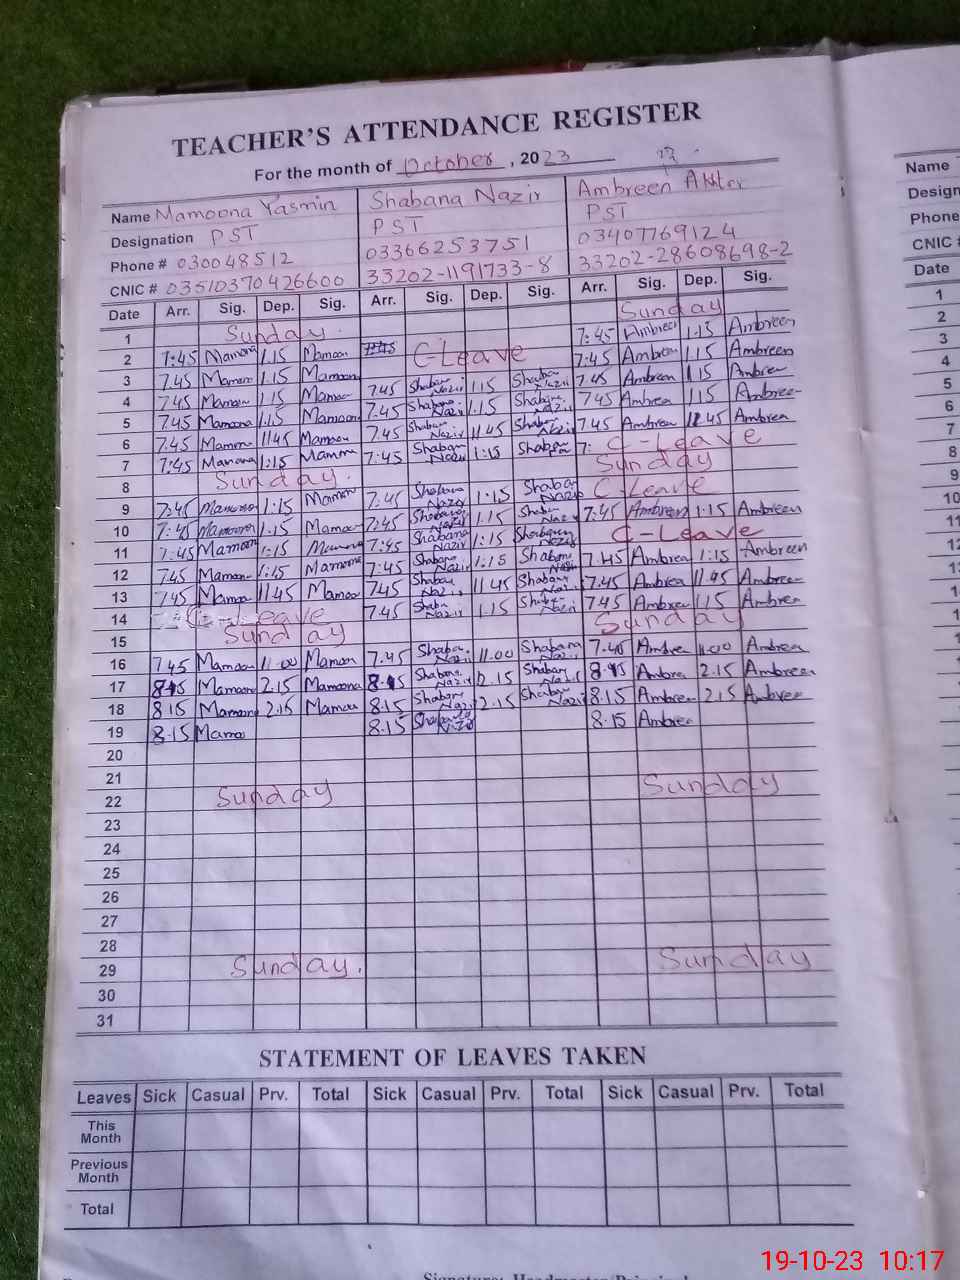 TEACHER'S ATTENDANCE REGISTER
For the month of October, 2023
Name Mamoona Yasmin Shabana Nazir Ambreen Akhtr
Designation PST PST PST
Phone # 030048512 03366253751 03407769124
CNIC # 03510370426600 33202-1191733-8 33202-28608698-2
Date Arr. Sig. Dep. Sig. Arr. Sig. Dep. Sig. Arr. Sig. Dep. Sig.
1 Sunday Sunday
2 7:45 1:15 Mamoon 7:45 C-Leave 7:45 Ambreen 1:15 Ambreen
3 7.45 Mamoon 1.15 Mamoona 7:45 Ambreen 1.15 Ambreen
4 7.45 Mamoon 1.15 Mamoon 7.45 Shaban Nazir 1:15 Shaban Nazir 7.45 Ambreen 1.15 Ambreen
5 7.45 Mamoona 1.15 Mamoona 7.45 Shabana Nazir 1.15 Shabana Nazir 7.45 Ambrea 1.15 Ambreen
6 7.45 Mamoon 11.45 Mamoon 7.45 Shaban Nazir 11.45 Shaban Nazir 7.45 Ambreen 12.45 Ambrea
7 7:45 Mamona 1:15 7:45 Shaban Nazir 1:15 Shaban 7: C-Leave
8 Sunday Sunday
9 7:45 Mamoona 1:15 Mamoon 7:45 Shabana Nazir 1:15 Shaban Nazir C-Leave
10 7:45 Mamoona 1.15 Mamoon 7:45 Shabana Nazir 1.15 Nazir 7:45 Ambreen 1.15 Ambreen
11 7:45 Mamoon 1:15 Mamona 7:45 Shabana Nazir 1:15 Shabana Nazir C-Leave
12 7.45 Mamoon 1:15 Mamoona 7:45 Shabana Nazir 1:15 Shabana Nazir 7.45 Ambrea 1:15 Ambreen
13 7.45 Mamoa 11.45 Mamoo 7.45 Shaban Nazir 11.45 Shabana Nazir 7.45 Ambrea 11.45 Ambreen
14 C-Leave 7.45 Shaban Nazir 1.15 Shaban Nazir 7.45 Ambreen 1.15 Ambrea
15 Sunday Sunday
16 7.45 Mamoon 11.00 Mamoon 7.45 Shaban Nazir 11.00 Shabana Nazir 7.45 Ambrea 11.00 Ambrea
17 8.15 Mamoona 2.15 Mamoona 8.15 Shabana Nazir 2.15 Shaban Nazir 8.15 Ambrea 2.15 Ambreen
18 8.15 Mamoona 2.15 Mamoon 8.15 Shabana Nazir 2.15 Shaban Nazir 8.15 Ambreen 2.15 Ambreen
19 8.15 Mamoo 8.15 Shabana Nazir 8.15 Ambreen
20
21
22 Sunday Sunday
23
24
25
26
27
28
29 Sunday. Sunday
30
31
STATEMENT OF LEAVES TAKEN
Leaves Sick Casual Prv. Total Sick Casual Prv. Total Sick Casual Prv. Total
This Month
Previous Month
Total
Name
Design
Phone
CNIC #
Date
1
2
3
4
5
6
7
8
9
10
19-10-23 10:17